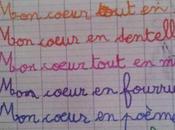 Mon coeur tout en
Mon coeur en dentell
Mon coeur tout en m
Mon coeur en fourru
Mon coeur en poèm